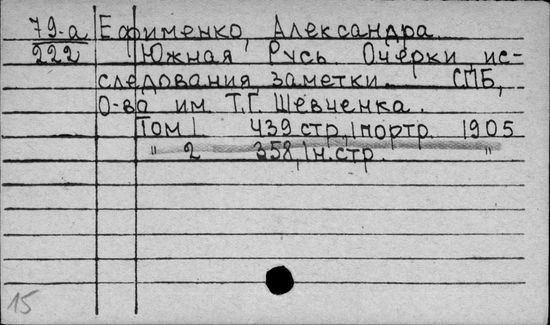 79-а Ефименко, Александра.
222 Южная Русь. Очерки, ис-
следования заметки. СПБ,
О-во им. Т.Г. Шевченка.
Том 1 439 стр., 1 портр. 1905
" 2 358, 1 н. стр. "
15